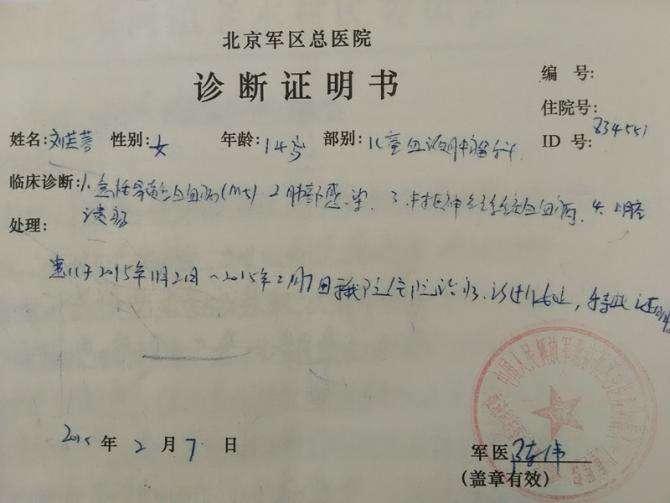 北京军区总医院
诊断证明书
编 号:
住院号:
姓名: 性别:女 年龄:14岁 部别:儿童血液肿瘤科 ID 号:834551
临床诊断:1.急性早幼白血病(M3) 2.肺部感染 3.中枢神经系统白血病 4.口腔
处理: 溃疡
患儿于2015年1月21日~2015年2月7日我院住院治疗, 特此证明
2015 年 2 月 7 日
军医
(盖章有效)